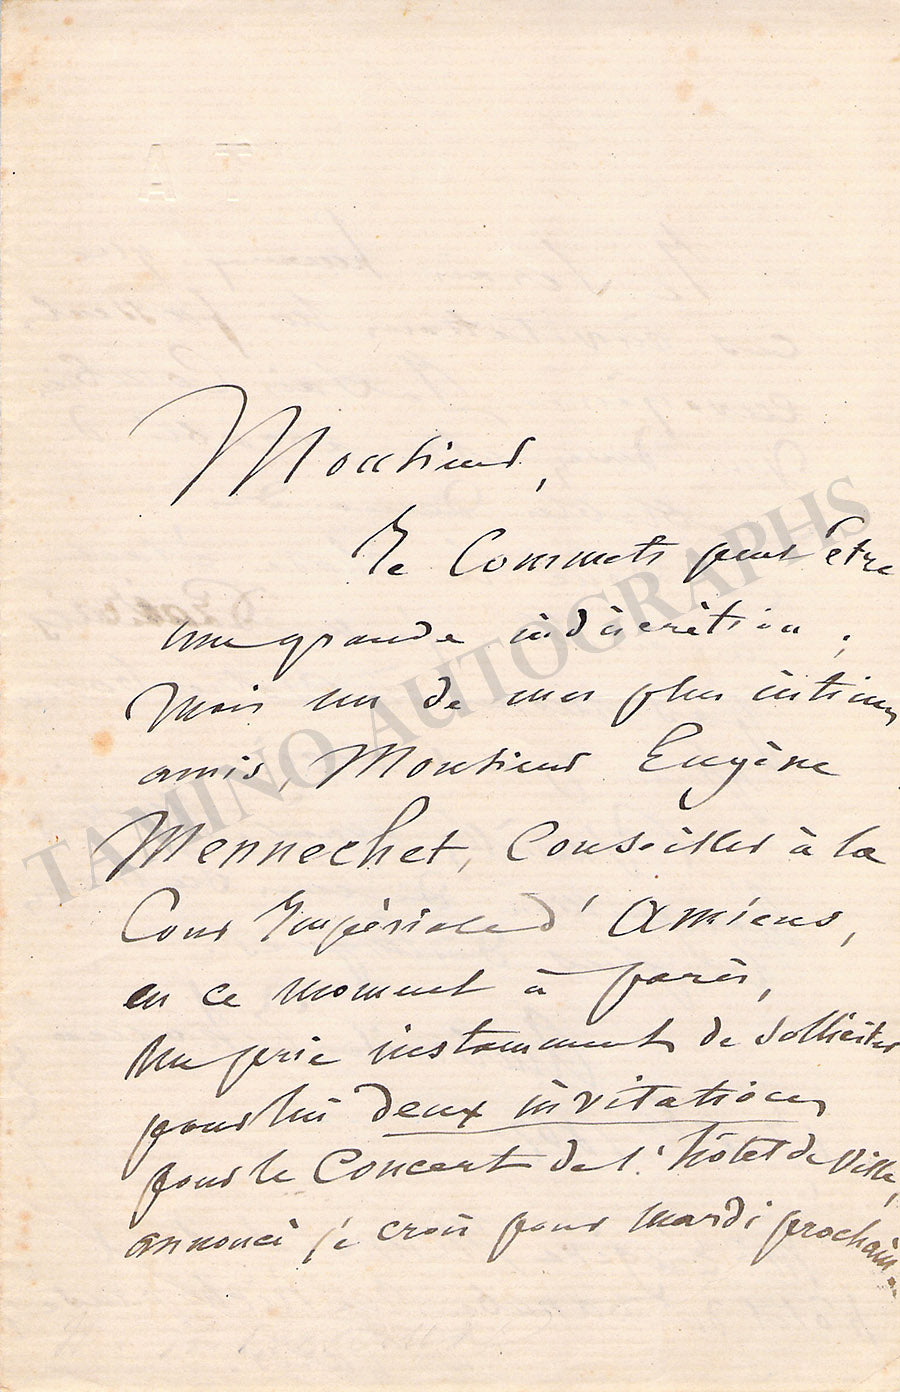 A T
Monsieur,
Je Commets peut être
une grande indiscrétion ;
Mais un de mes plus intimes
amis, Monsieur Eugène
Mennechet, Conseiller à la
Cour Impériale d'Amiens,
en ce moment à paris,
me prie instamment de solliciter
pour lui deux invitations
pour le Concert de l'hôtel de Ville,
annoncé je crois pour mardi prochain.
TAMINO AUTOGRAPHS